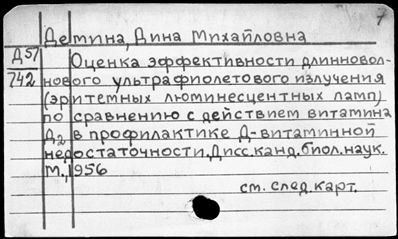 7
Демина, Дина Михайловна
Д57 Оценка эффективности длинновол-
742 нового ультрафиолетового излучения
(эритемных люминесцентных ламп)
по сравнению с действием витамина
Д2 в профилактике Д-витаминной
недостаточности. Дисс. канд. биол. наук.
М., 1956
см. след. карт.